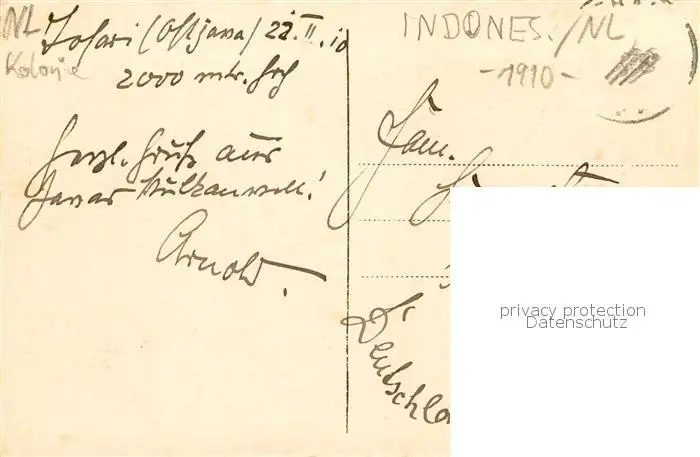 NL
Kolonie
Tosari (Ostjava) 22.II.10
2000 mtr. hch
INDONES./NL
-1910-
herzl. Gruß aus
Javas Vulkanwelt!
Arnold.
Fam.
Deutschla
privacy protection
Datenschutz